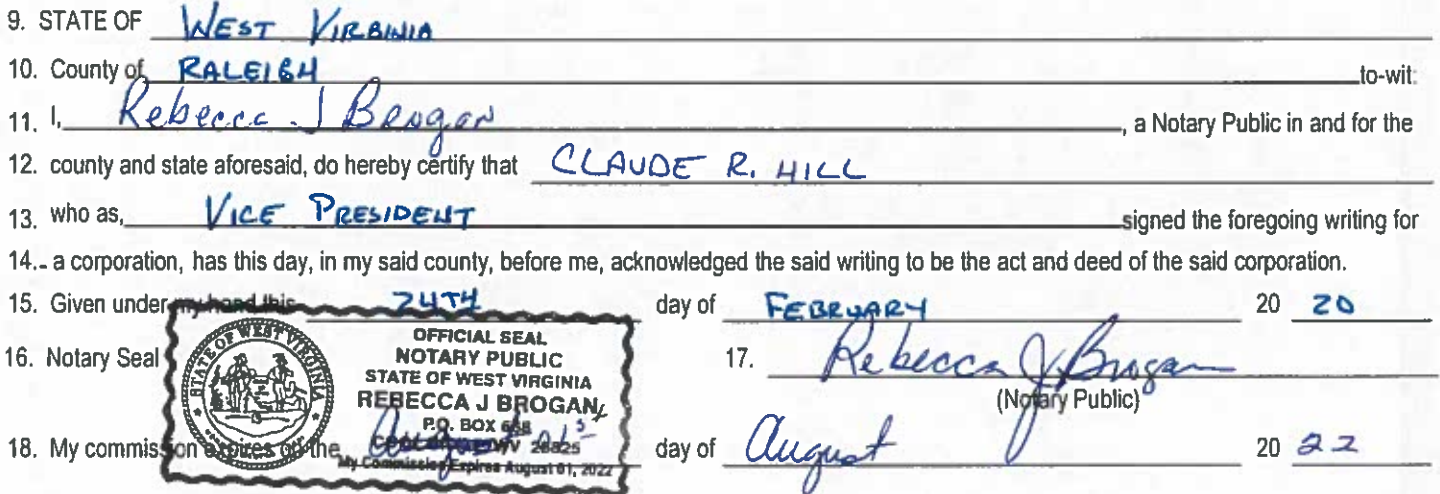 9. STATE OF WEST VIRGINIA
10. County of RALEIGH to-wit:
11. I, Rebecca J Brogan, a Notary Public in and for the
12. county and state aforesaid, do hereby certify that CLAUDE R. HILL
13. who as, VICE PRESIDENT signed the foregoing writing for
14. a corporation, has this day, in my said county, before me, acknowledged the said writing to be the act and deed of the said corporation.
15. Given under my hand this 24TH day of FEBRUARY 20 20
16. Notary Seal
STATE OF WEST VIRGINIA
OFFICIAL SEAL
NOTARY PUBLIC
STATE OF WEST VIRGINIA
REBECCA J BROGAN
P.O. BOX
WV 25825
My Commission Expires August 01, 2022
17. Rebecca J Brogan
(Notary Public)
18. My commission expires on the August 1st day of August 20 22